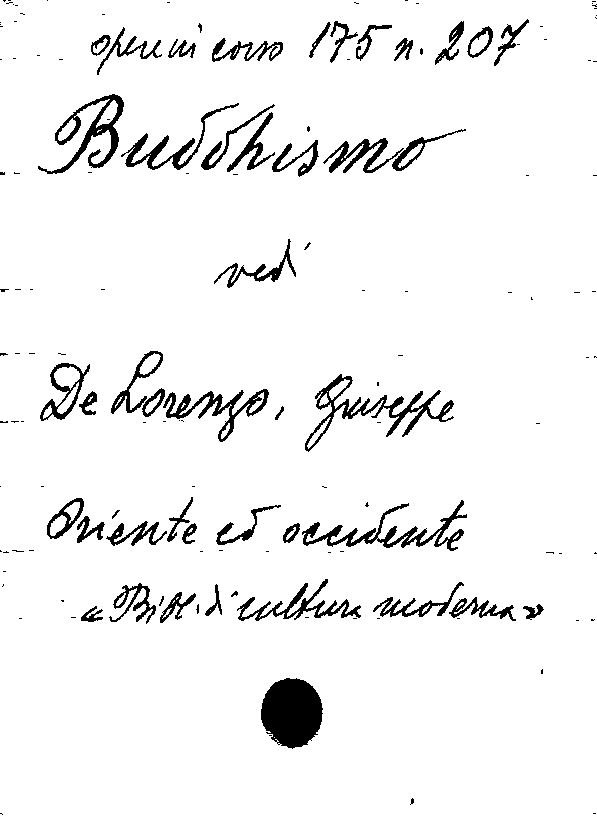 opere in corso 175 n. 207
Buddhismo
vedi
De Lorenzo, Giuseppe
Oriente ed occidente
«Bibl. di cultura moderna»